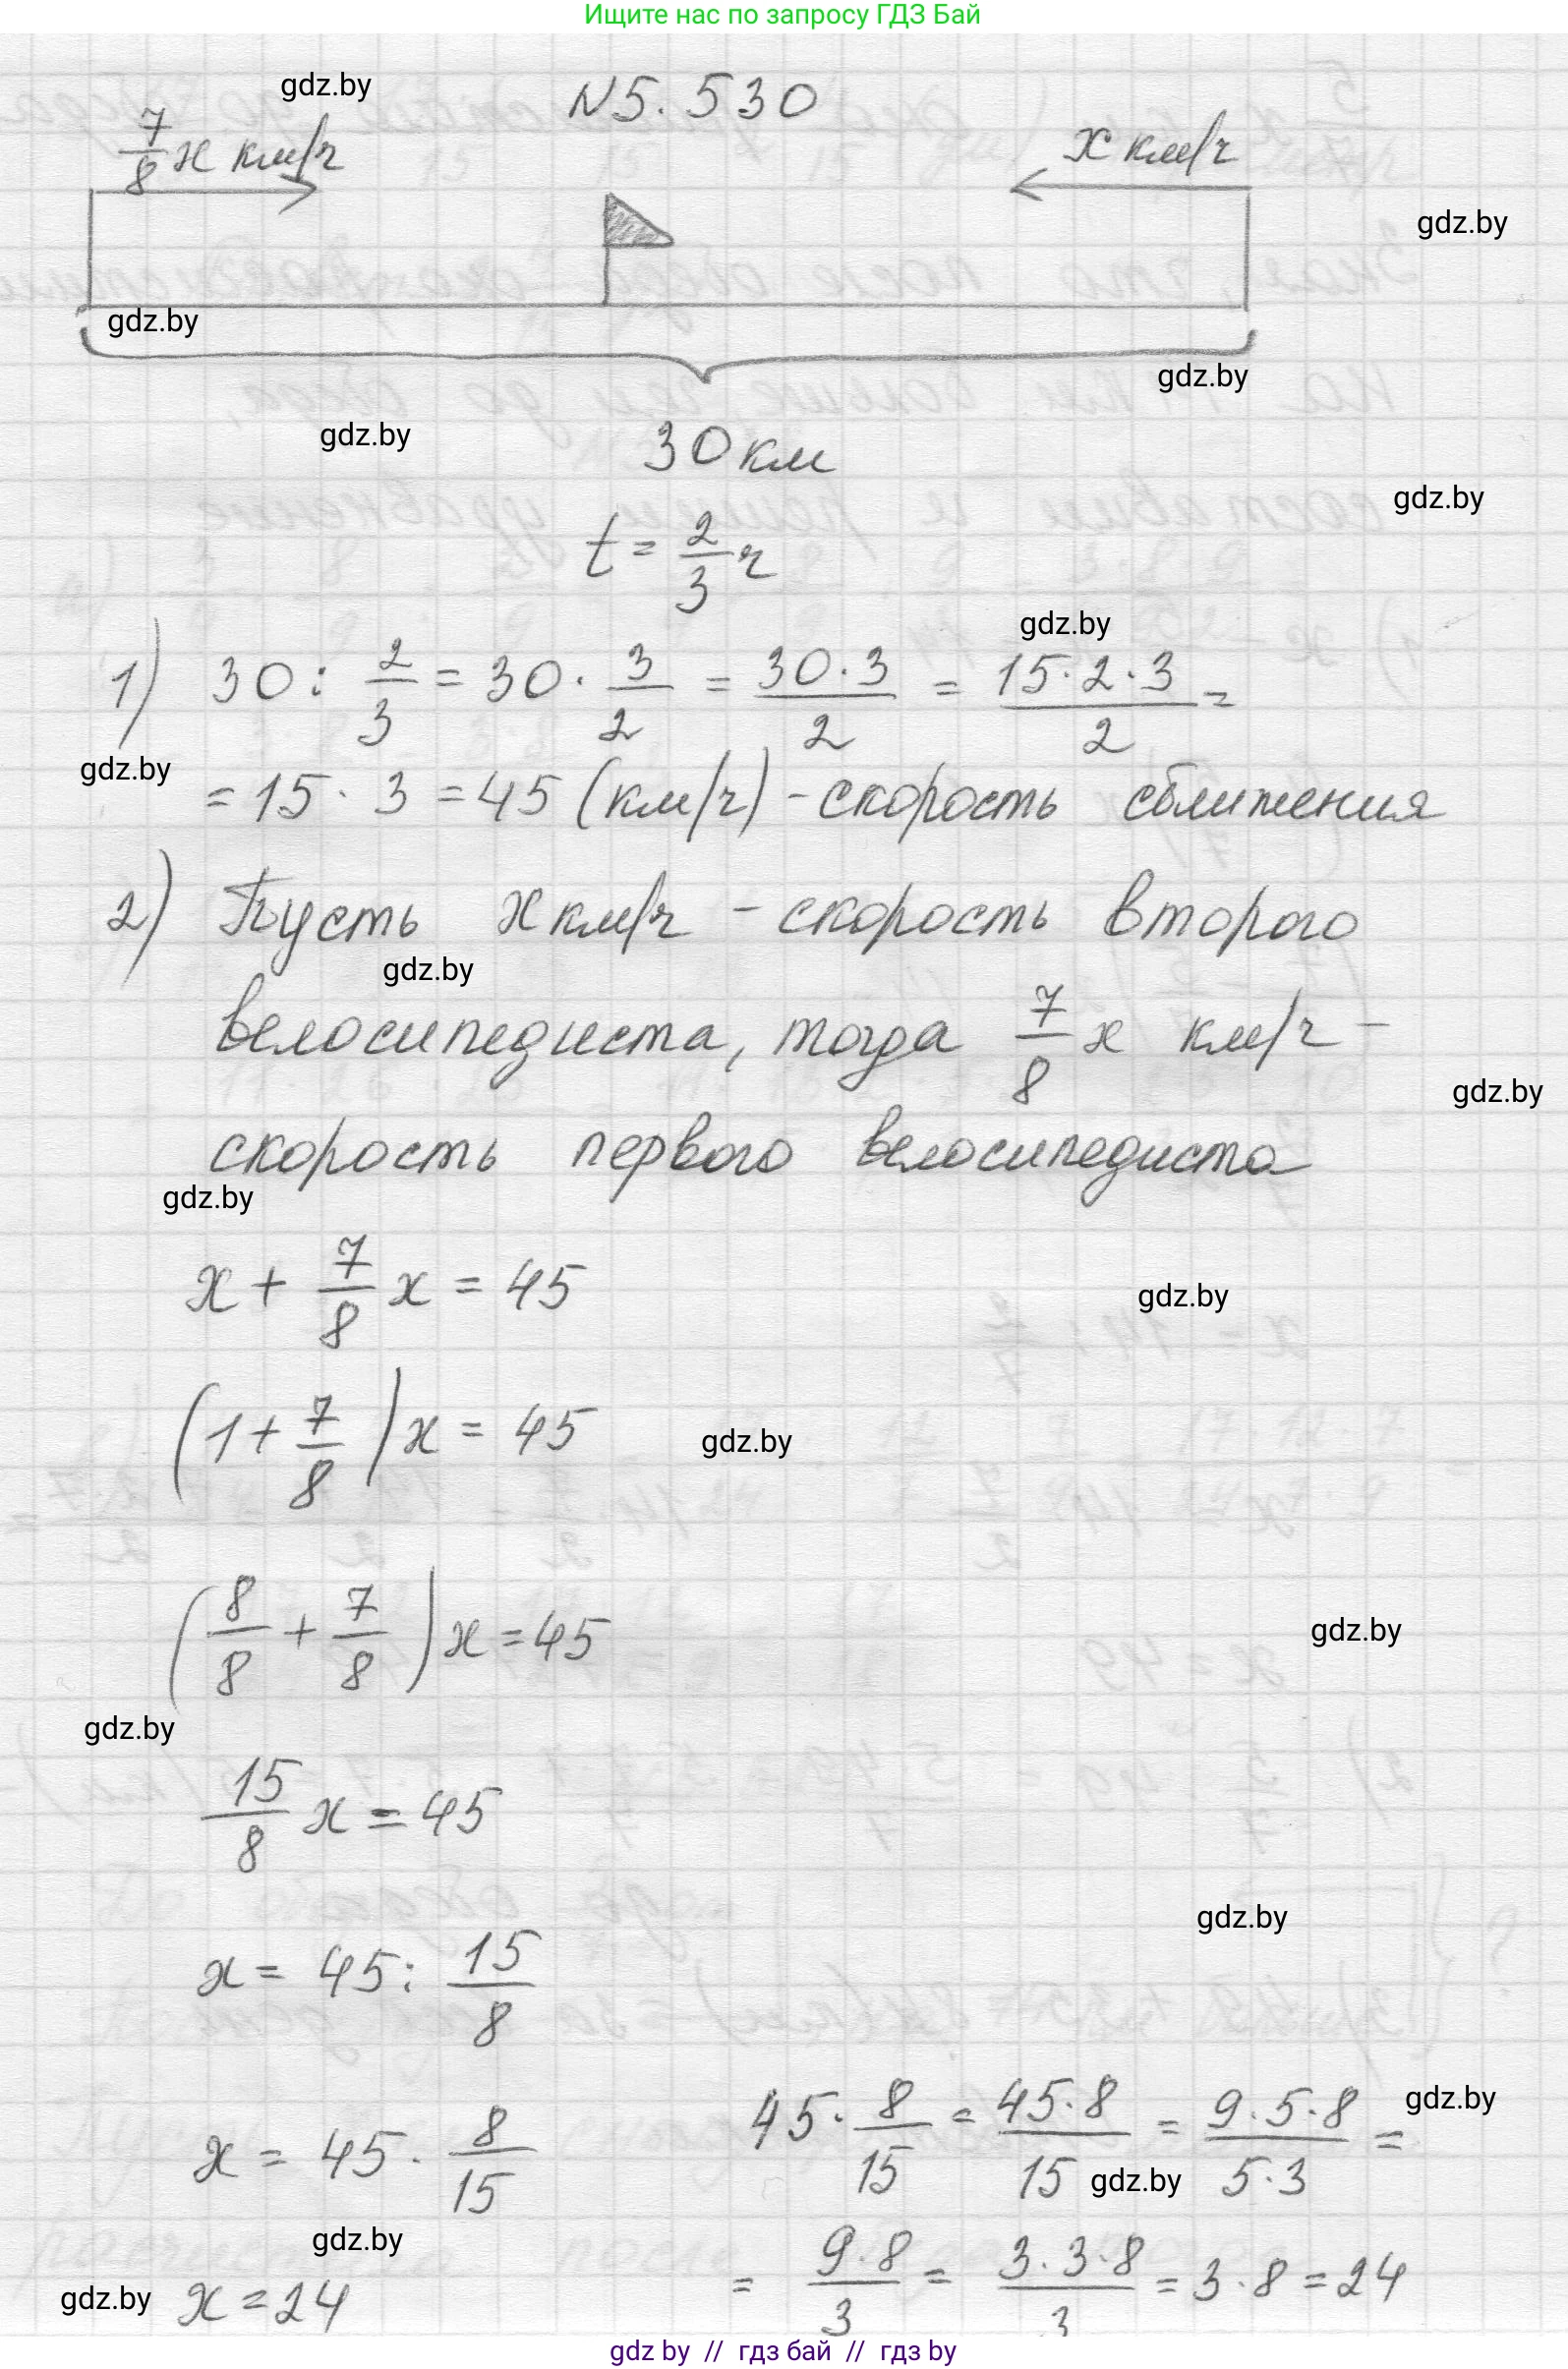 Ищите нас по запросу ГДЗ Бай
gdz.by
N5.530
7/8 x км/ч
x км/ч
gdz.by
gdz.by
gdz.by
gdz.by
30 км
gdz.by
t = 2/3 ч
gdz.by
1) 30 : 2/3 = 30 · 3/2 = 30·3/2 = 15·2·3/2 =
gdz.by
= 15 · 3 = 45 (км/ч) - скорость сближения
2) Пусть x км/ч - скорость второго
gdz.by
велосипедиста, тогда 7/8 x км/ч -
gdz.by
скорость первого велосипедиста
gdz.by
x + 7/8 x = 45
gdz.by
(1 + 7/8) x = 45
gdz.by
(8/8 + 7/8) x = 45
gdz.by
gdz.by
15/8 x = 45
gdz.by
x = 45 : 15/8
gdz.by
x = 45 · 8/15
45 · 8/15 = 45·8/15 = 9·5·8/5·3 =
gdz.by
gdz.by
gdz.by
x = 24
= 9·8/3 = 3·3·8/3 = 3·8 = 24
gdz.by // гдз бай // гдз by